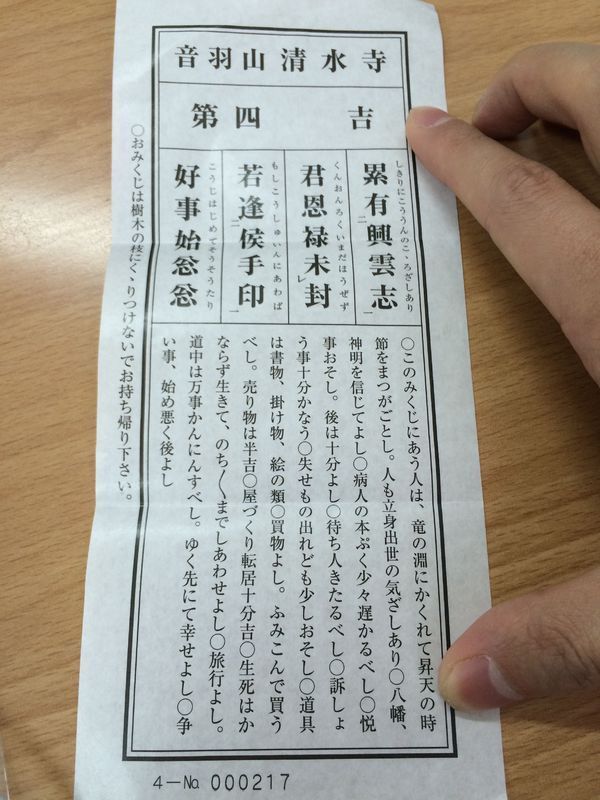 音羽山清水寺
第四 吉
累有興雲志
しきりにこううんのこゝろざしあり
二 一
君恩禄未封
くんおんろくいまだほうぜず
レ
若逢侯手印
もしこうしゅいんにあわば
二 一
好事始忩忩
こうじはじめてそうそうたり
〇このみくじにあう人は、竜の淵にかくれて昇天の時
節をまつがごとし。人も立身出世の気ざしあり〇八幡、
神明を信じてよし〇病人の本ぷく少々遅かるべし〇悦
事おそし。後は十分よし〇待ち人きたるべし〇訴しょ
う事十分かなう〇失せもの出れども少しおそし〇道具
は書物、掛け物、絵の類〇買物よし。ふみこんで買う
べし。売り物は半吉〇屋づくり転居十分吉〇生死はか
ならず生きて、のち〳〵までしあわせよし〇旅行よし。
道中は万事かんにんすべし。ゆく先にて幸せよし〇争
い事、始め悪く後よし
〇おみくじは樹木の枝にくゝりつけないでお持ち帰り下さい。
4－№ 000217